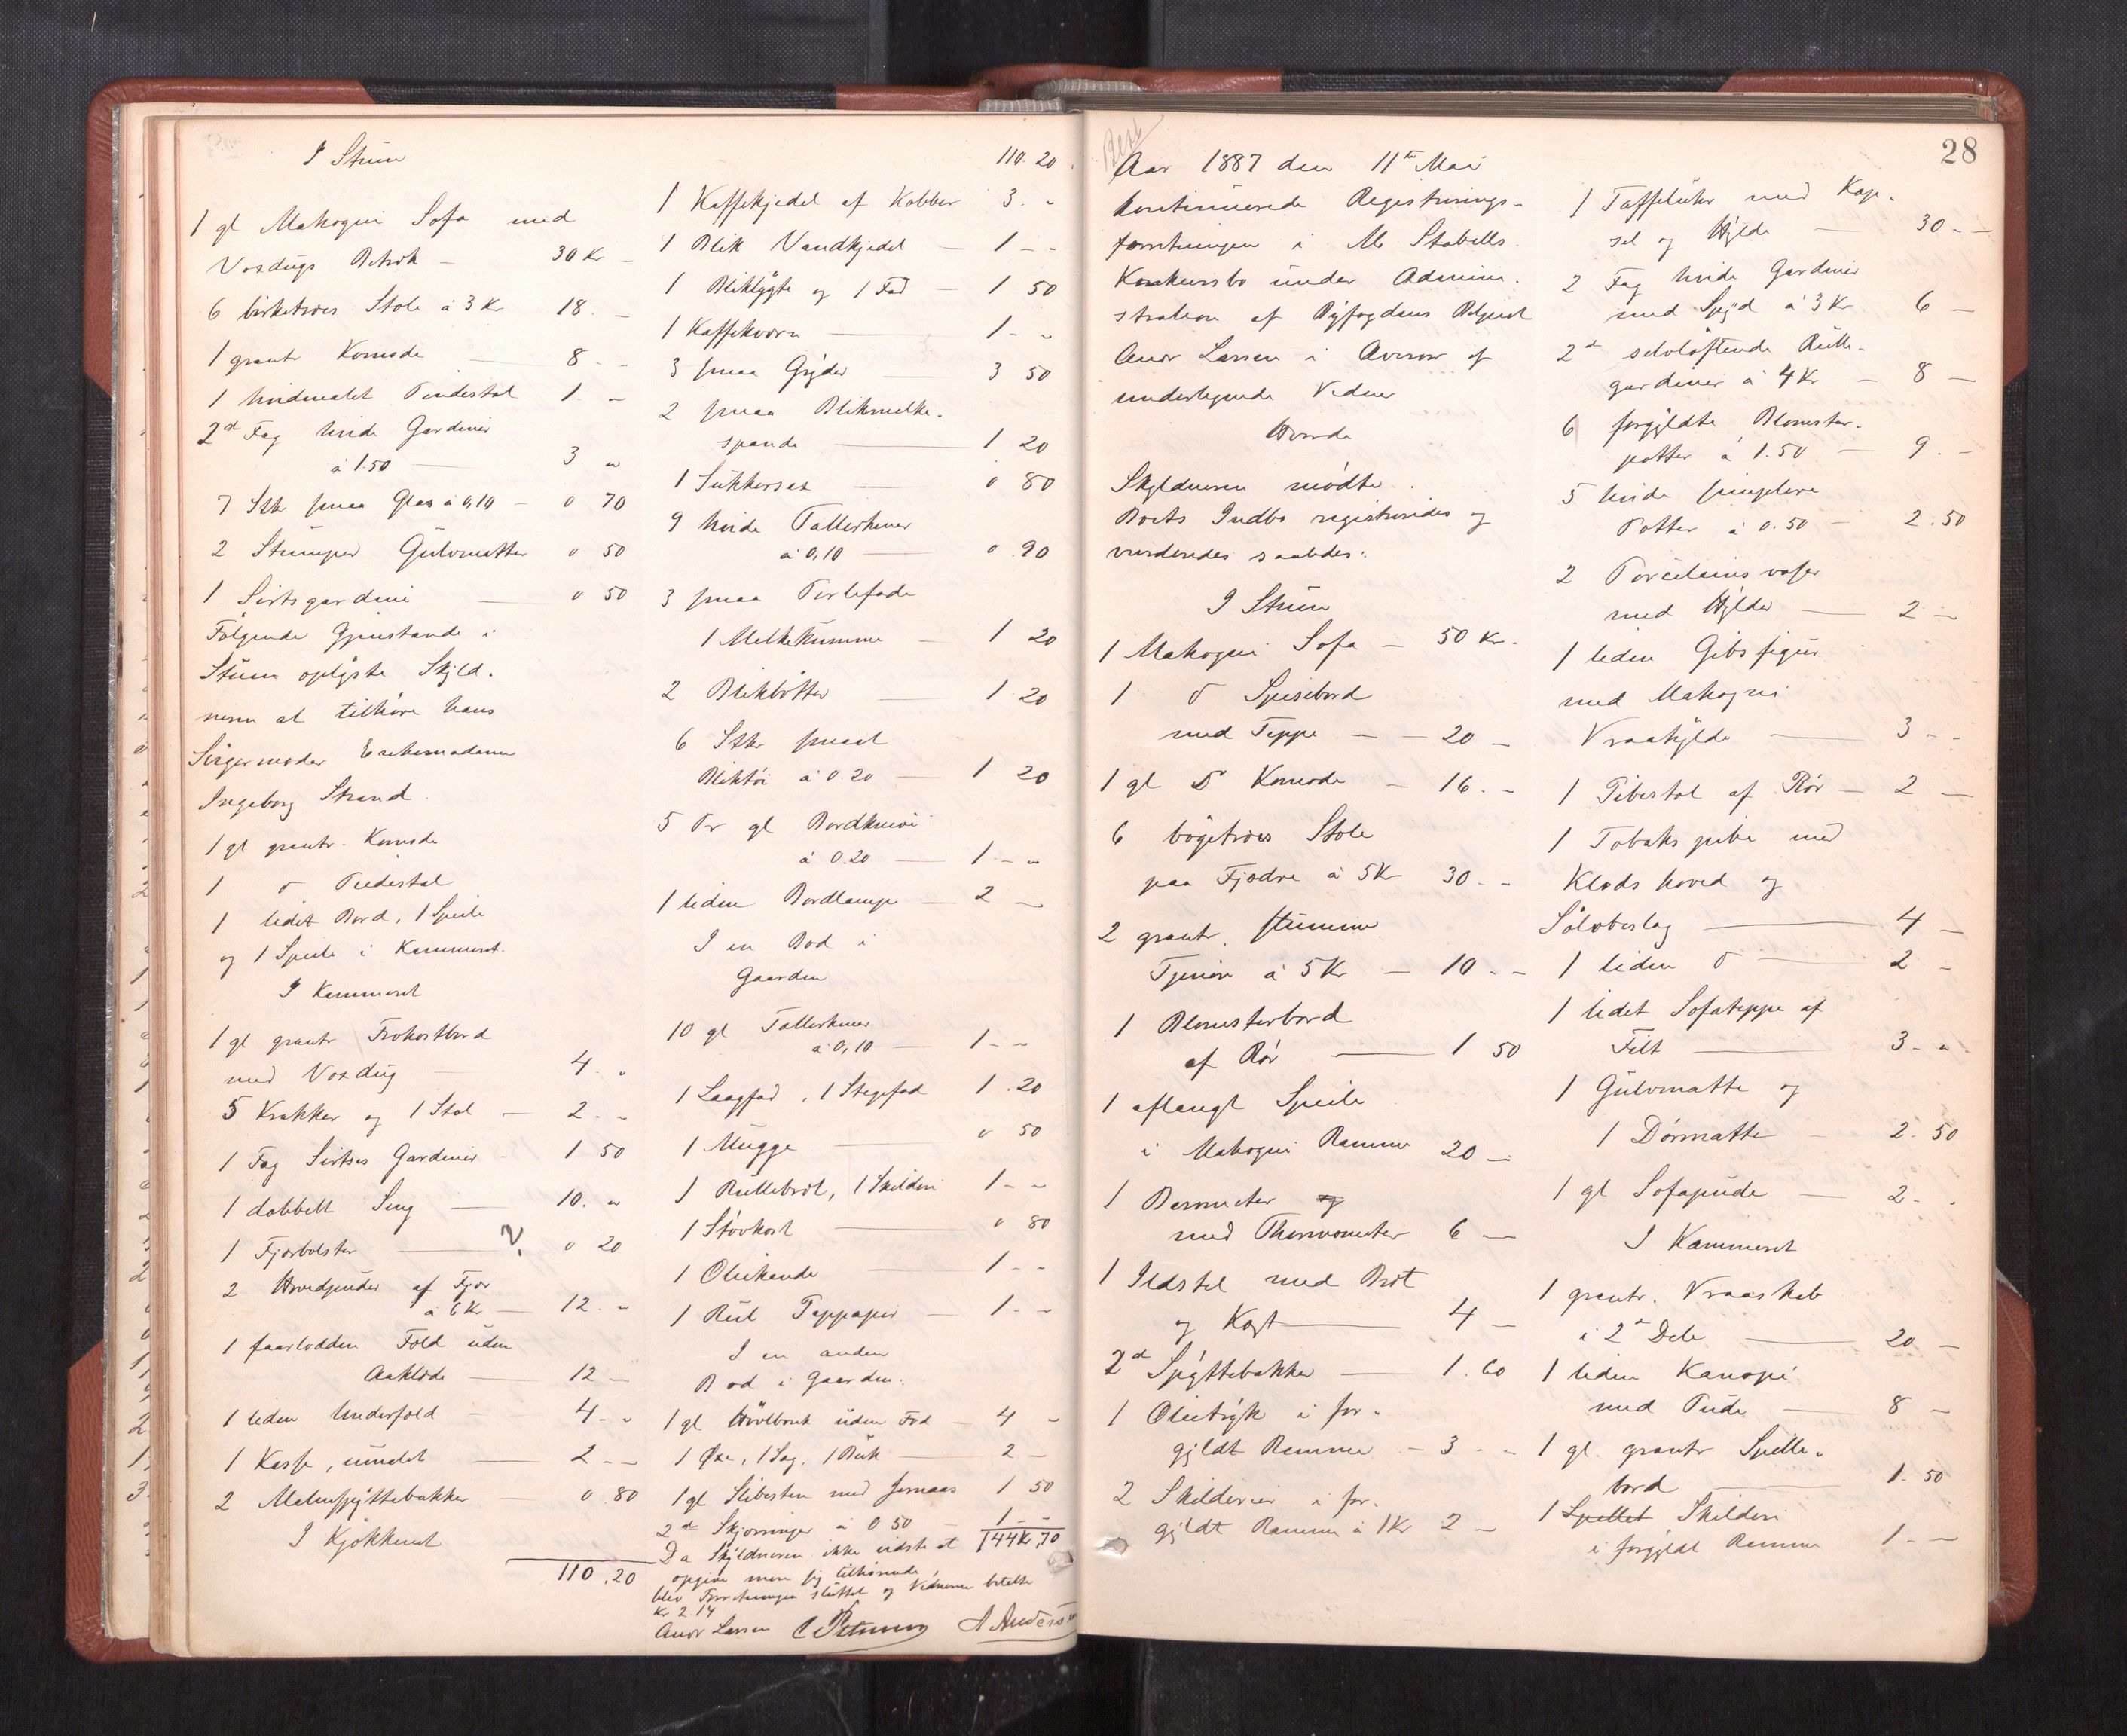 I Stuen
1 gl Mahogni Sofa med
Voxdugs Betræk — 30 Kr —
6 birketræes Stole à 3 Kr 18. —
1 grantr Komode — 8 - -
1 hvidmalet Piedestal 1. —
2d Fag hvide Gardiner
à 1.50 — 3 "
7 Stkr smaa Glas à 0,10 — 0 70
2 Stumper Gulvmatter 0 50
1 Sirtsgardine — 0 50
Følgende Gjenstande i
Stuen oplyste Skyld-
neren at tilhøre hans
Svigermoder Enkemadame
Ingeborg Strand.
1 gl grantr. Komode
1 d Piedestal
1 lidet Bord, 1 Speile
og 1 Speile i Kammeret.
I Kammeret
1 gl grantr Frokostbord
med Voxdug — 4. "
5 Krakker og 1 Stol — 2. -
1 Fag Sirtses Gardiner - 1 50
1 dobbelt Seng — 10. "
1 Fjærbolster — ? 0 20
2 Hovedpuder af Fjær
à 6 Kr — 12. -
1 faarlodden Fæld uden
Aaklæde — 12 —
1 liden Underfæld — 4. -
1 Kasse, umalet — 2 - -
2 Malmspyttebakker — 0.80
I Kjøkkenet
110,20
110.20.
1 Kaffekjedel af Kobber 3. -
1 Blik Vandkjedel — 1 - -
1 Bliklygte og 1 Fad — 1 50
1 Kaffekværn — 1 - -
3 smaa Gryder — 3 50
2 smaa Blikmelke-
spande — 1 20
1 Sukkersax — 0 80
9 hvide Tallerkener
à 0,10 — 0.90
3 smaa Perlefade
1 Melkekumme — 1 20
2 Blikbøtter — 1 20
6 Stkr smaat
Bliktøi à 0.20 — 1 20
5 Pr gl Bordknive
à 0.20 — 1 - -
1 liden Bordlampe — 2 —
I en Bod i
Gaarden
10 gl Tallerkener
à 0,10 — 1 - -
1 Laagfad, 1 Stegefad 1.20
1 Mugge — 0 50
1 Rullebræt, 1 Skilderi 1 - -
1 Støvkost — 0 80
1 Oliekande — 1 - -
1 Rul Tappapir — 1 - -
I en anden
Bod i Gaarden.
1 gl Høvlbænk uden Fod — 4 -
1 Øxe, 1 Sag, 1 Buk — 2 —
1 gl Slibesten med Jernaas 1 50
2d Skjæringer à 0 50 — 1 - -
Da Skyldneren ikke vidste at 144 Kr,70
opgive mere sig tilhørende,
blev Forretningen sluttet og Vidnerne betalte
Kr 2.14
Andr Larsen C Petersen A Andersen
28
Aar 1887 den 11te Mai
kontinuerede Registrerings-
forretningen i M. Stabells
Konkursbo under Admini-
stration af Byfogdens Betjent
Andr Larsen i Overvær af
undertegnede Vidner
Hvorda
Skyldneren mødte.
Boets Indbo registreredes og
vurderedes saaledes:
I Stuen
1 Mahogni Sofa — 50 Kr.
1 d Speisebord
med Teppe — — 20 —
1 gl do Komode — 16. -
6 bøgetræes Stole
paa Fjædre à 5 Kr 30. -
2 grantr. stumme
Tjenere à 5 Kr — 10 - -
1 Blomsterbord
af Rør — 1 50
1 aflangt Speile
i Mahogni Ramme 20 —
1 Barometer og
med Thermometer 6 —
1 Ildstel med Bræt
og Kost — 4 —
2d Spyttebakker — 1.60
1 Olietryk i for-
gyldt Ramme — 3 - -
2 Skilderier i for-
gyldt Ramme à 1 Kr 2 —
1 Taffeluhr med Kap-
sel og Hylde — 30 - -
2 Fag hvide Gardiner
med Spyd à 3 Kr 6 —
2d selvløftende Rulle-
gardiner à 4 Kr — 8 —
6 forgyldte Blomster-
potter à 1.50 — 9. -
5 hvide simplere
Potter à 0.50 — 2.50
2 Porcelæns vaser
med Hylder — 2 —
1 liden Gibsfigur
med Mahogni
Vraahylde — 3 - -
1 Pibestol af Rør — 2 —
1 Tobakspibe med
Klods hoved og
Sølvbeslag — 4 —
1 liden d — 2 -
1 lidet Sofateppe af
Filt — 3 - "
1 Gulvmatte og
1 Dørmatte — 2.50
1 gl Sofapude — 2 - .
I Kammeret
1 grantr. Vraaskab
i 2d Dele — 20 —
1 liden Kanape
med Pude — 8 —
1 gl grantr Spille-
bord — 1.50
1 Spillet Skilderi
i forgyldt Ramme 1. —